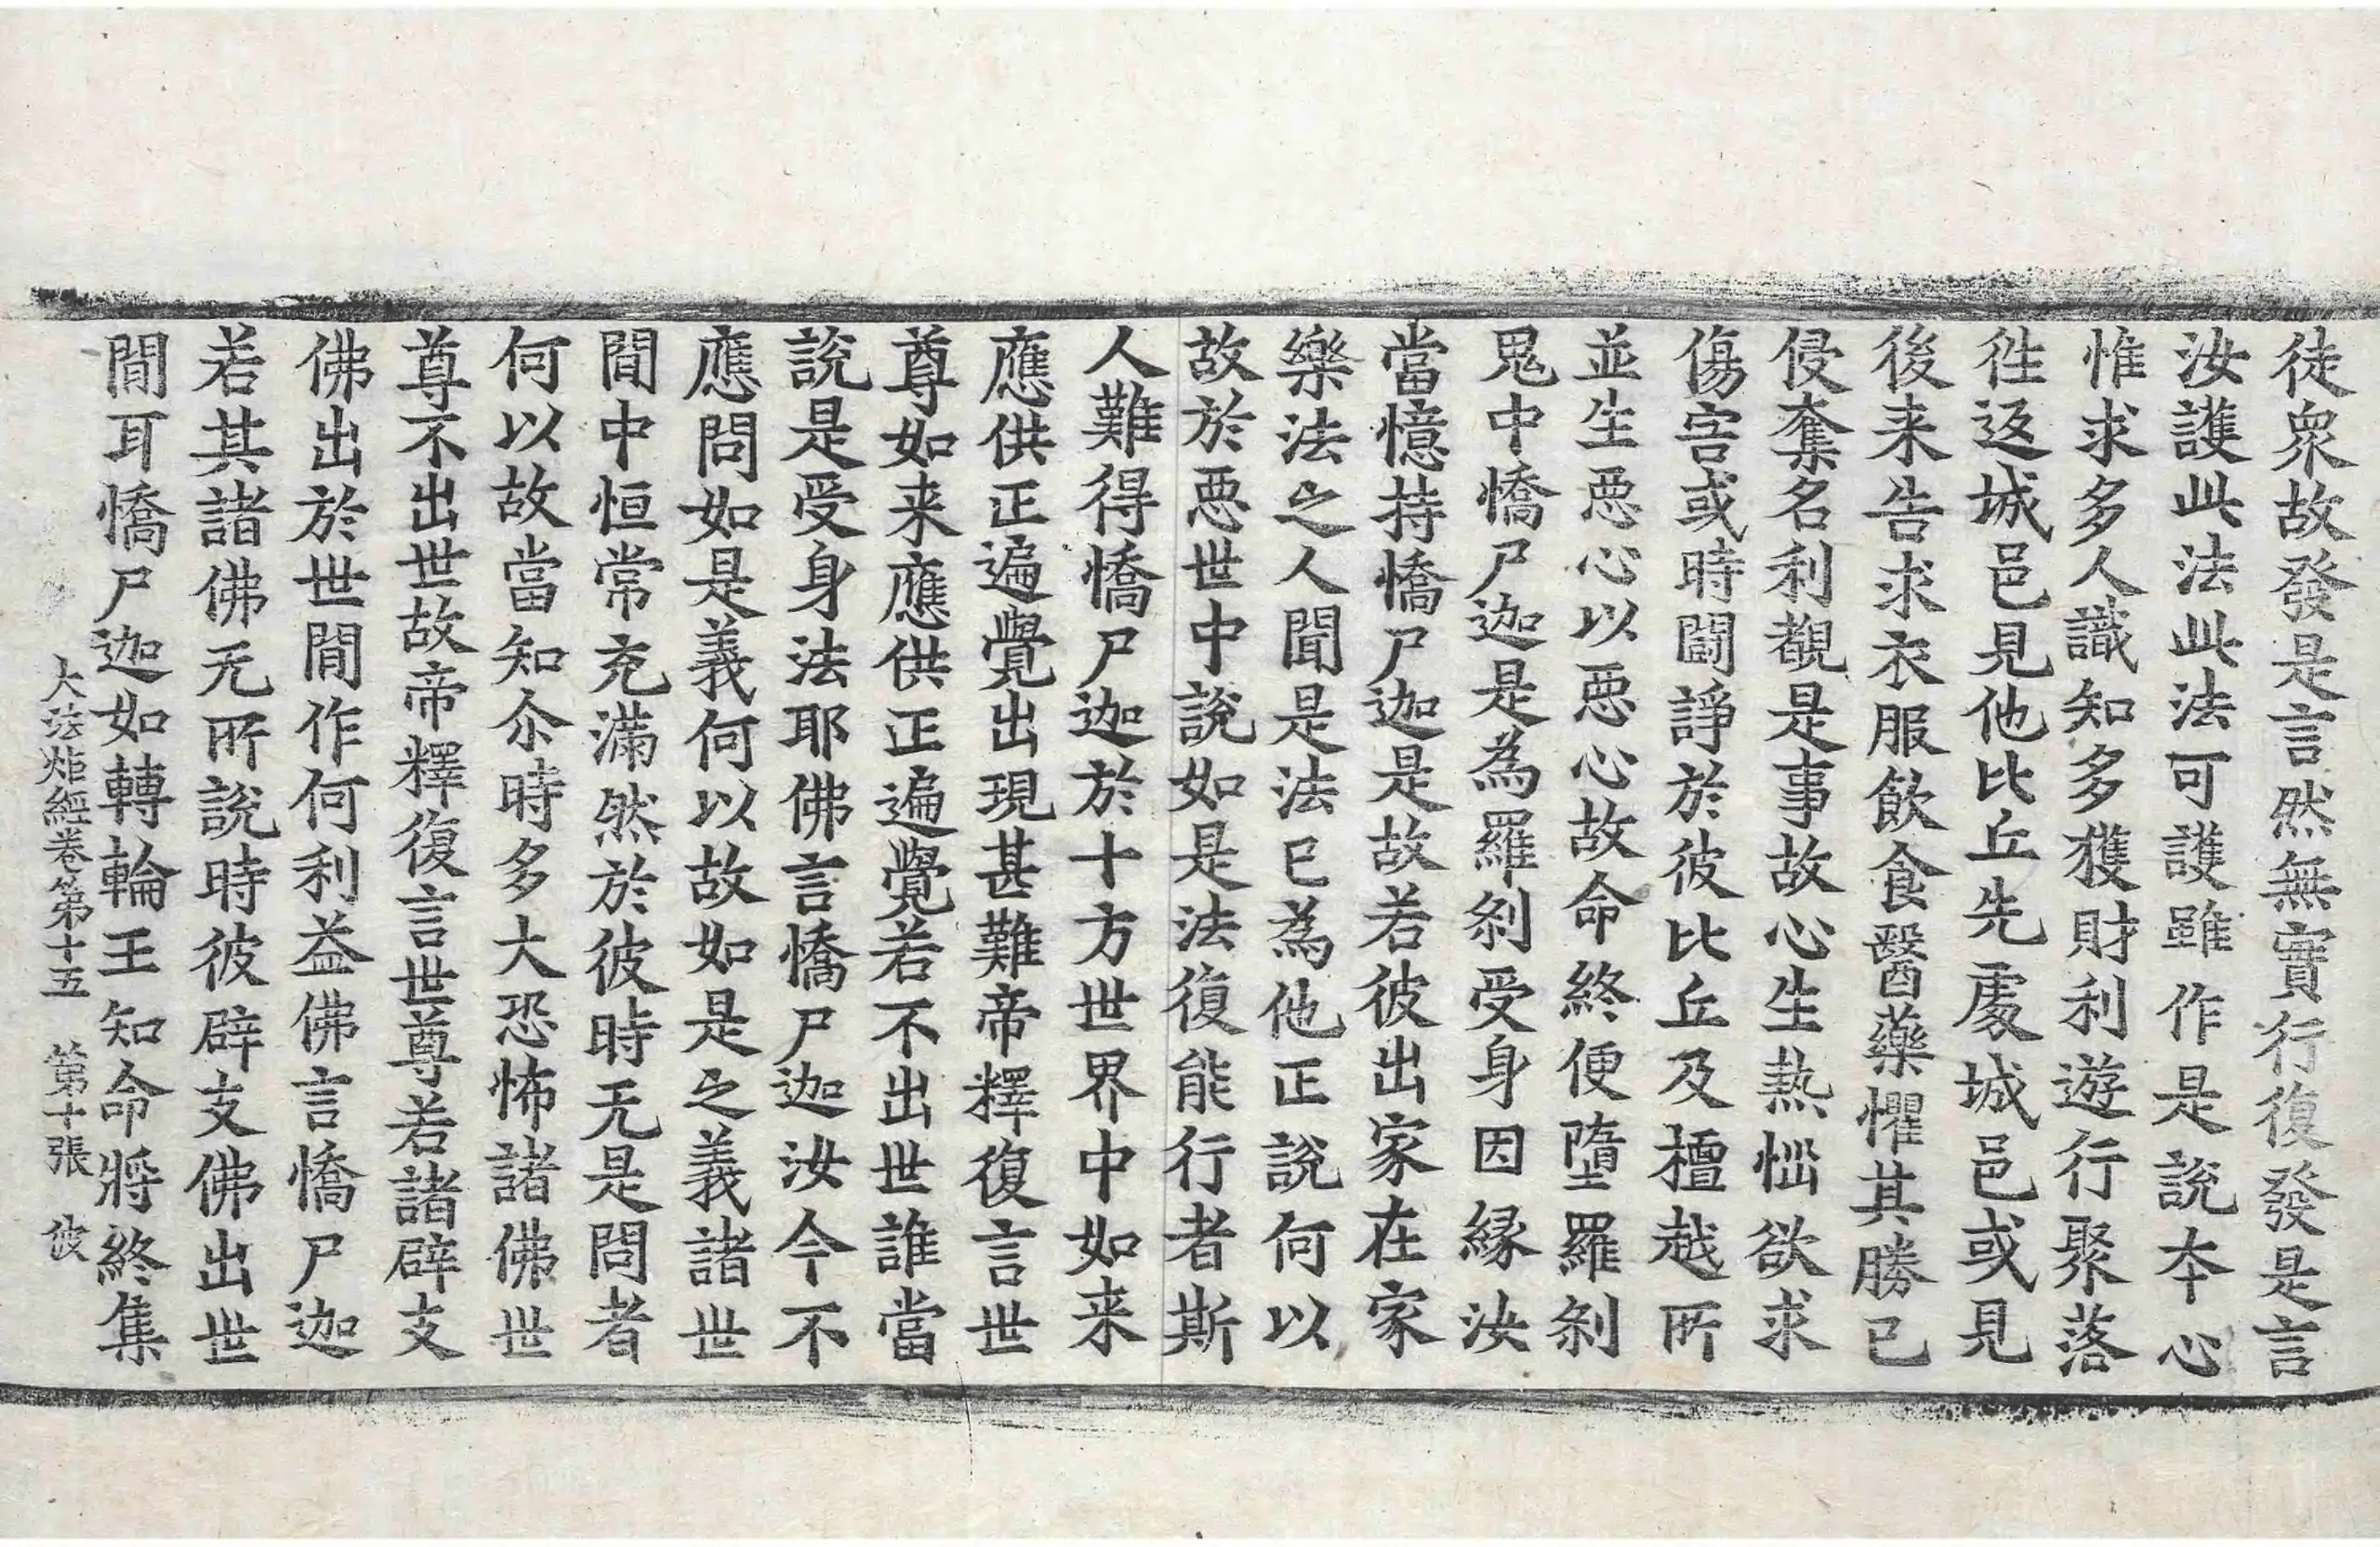 徒衆故發是言然無實行復發是言
汝護此法此法可護雖作是說本心
惟求多人識知多獲財利遊行聚落
往返城邑見他比丘先處城邑或見
後来告求衣服飲食醫藥懼其勝己
侵奪名利覩是事故心生熱惱欲求
傷害或時鬪諍於彼比丘及檀越所
並生惡心以惡心故命終便墮羅剎
鬼中憍尸迦是為羅剎受身因緣汝
當憶持憍尸迦是故若彼出家在家
樂法之人聞是法已為他正說何以
故於惡世中說如是法復能行者斯
人難得憍尸迦於十方世界中如来
應供正遍覺出現甚難帝釋復言世
尊如来應供正遍覺若不出世誰當
說是受身法耶佛言憍尸迦汝今不
應問如是義何以故如是之義諸世
間中恒常充滿然於彼時无是問者
何以故當知尒時多大恐怖諸佛世
尊不出世故帝釋復言世尊若諸辟支
佛出於世間作何利益佛言憍尸迦
若其諸佛无所說時彼辟支佛出世
間耳憍尸迦如轉輪王知命將終集
大法炬經卷第十五 第十張 彼